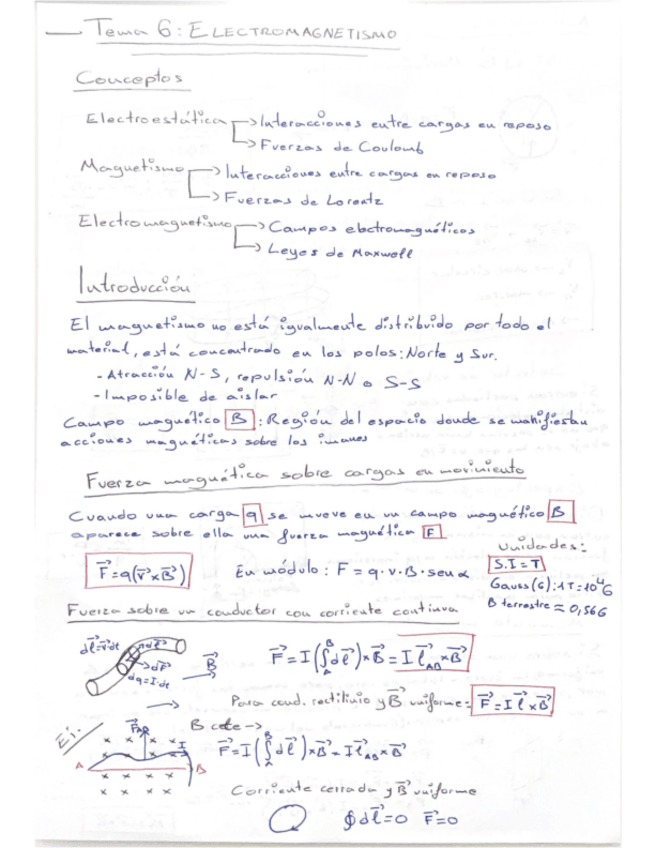 Tema 6: ELECTROMAGNETISMO
Conceptos
Electroestática → Interacciones entre cargas en reposo
→ Fuerzas de Coulomb
Magnetismo → Interacciones entre cargas en reposo
→ Fuerzas de Lorentz
Electromagnetismo → Campos electromagnéticos
→ Leyes de Maxwell
Introducción
El magnetismo no está igualmente distribuido por todo el
material, está concentrado en los polos: Norte y Sur.
- Atracción N-S, repulsión N-N o S-S
- Imposible de aislar
Campo magnético B : Región del espacio donde se manifiestan
acciones magnéticas sobre los imanes
Fuerza magnética sobre cargas en movimiento
Cuando una carga q se mueve en un campo magnético B
aparece sobre ella una fuerza magnética F
Unidades:
S.I = T
F⃗ = q(v⃗ × B⃗) En módulo: F = q · v · B · sen α
Gauss(G): 1T = 10⁴G
B terrestre ≈ 0,56G
Fuerza sobre un conductor con corriente continua
dl⃗ = v⃗dt
dF⃗
dq = I·dt
B⃗
F⃗ = I(∫_A^B dl⃗) × B⃗ = I l⃗_AB × B⃗
Para cond. rectilinio y B⃗ uniforme: F⃗ = I l⃗ × B⃗
Ej:
F⃗AB
I
A
B
B cte →
F⃗ = I(∫_A^B dl⃗) × B⃗ = I l⃗_AB × B⃗
Corriente cerrada y B⃗ uniforme
∮dl⃗ = 0 F⃗ = 0